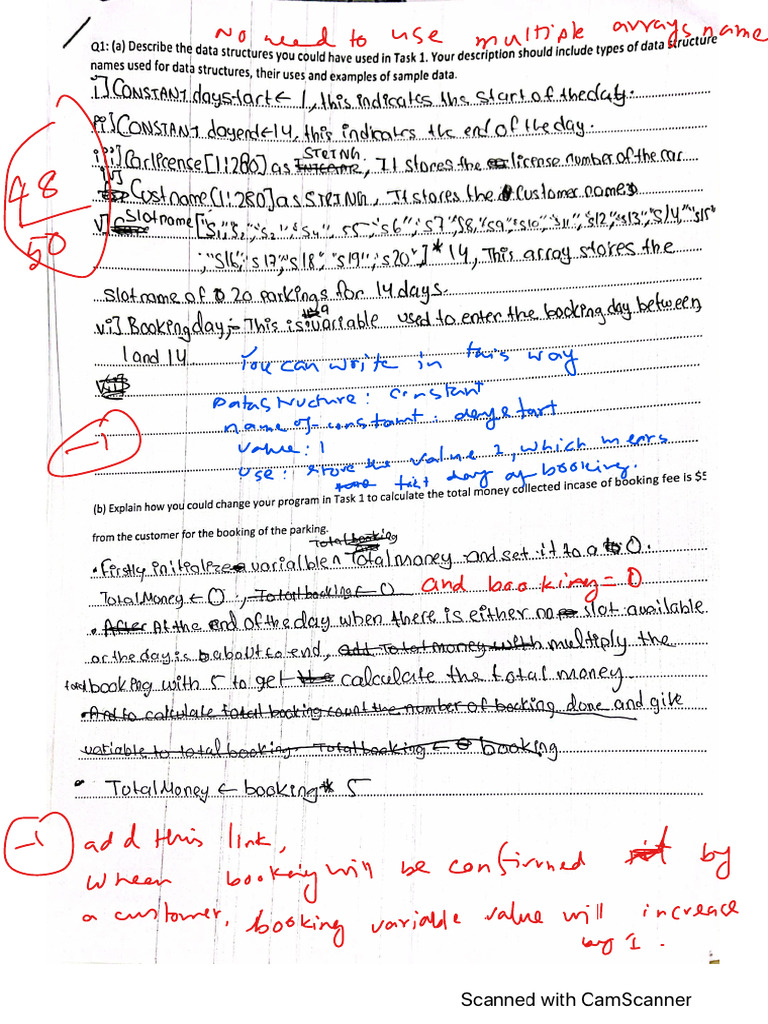 No need to use multiple arrays name
Q1: (a) Describe the data structures you could have used in Task 1. Your description should include types of data structure
names used for data structures, their uses and examples of sample data.
i] CONSTANT daystart ← 1, this indicates the start of the day.
ii] CONSTANT dayend ← 14, this indicates the end of the day.
iii] Carlicence [1:280] as STRING, It stores the license number of the car
iv] Custname [1:280] as STRING, It stores the Customer names
v] Slotname ["s1", "s2", "s4", "s6", "s7", "s8", "s9", "s10", "s11", "s12", "s13", "s14", "s15"
, "s16", "s17", "s18", "s19", "s20"] * 14, This array stores the
slotname of 20 parkings for 14 days.
vi] Bookingday:- This is a variable used to enter the booking day between
1 and 14
You can write in this way
Datastructure: constant
name of constant: daystart
value: 1
use: store the value 1, which means
first day of booking.
48
50
-1
(b) Explain how you could change your program in Task 1 to calculate the total money collected incase of booking fee is $5
from the customer for the booking of the parking.
• Firstly initialize variable Total money and set it to a 0.
TotalMoney ← 0, Totalbooking ← 0 and booking = 0
• At the end of the day when there is either no slot available
or the day is about to end, add Total money with multiply the
total booking with 5 to get calculate the total money
And to calculate total booking count the number of booking done and give
variable to total booking. Totalbooking ← booking
• TotalMoney ← booking * 5
-1
add this link,
when booking will be confirmed by
a customer, booking variable value will increase
by 1.
Scanned with CamScanner